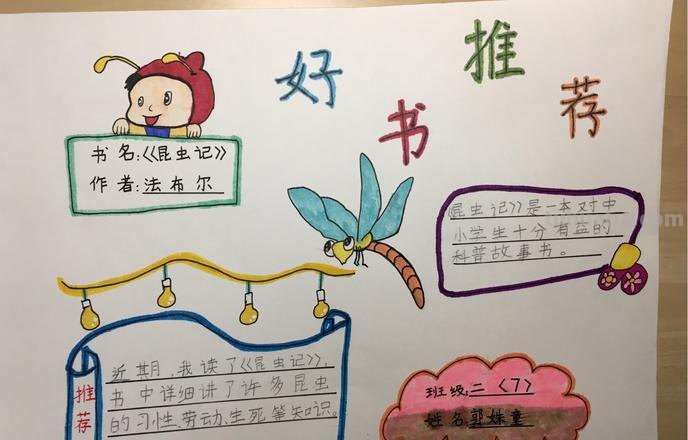 好书推荐
书名:《昆虫记》
作者:法布尔
《昆虫记》是一本对中
小学生十分有益的
科普故事书。
推荐
近期,我读了《昆虫记》,
书中详细讲了许多昆虫
的习性、劳动、生死等知识。
班级:二〈7〉
姓名:郭姝童